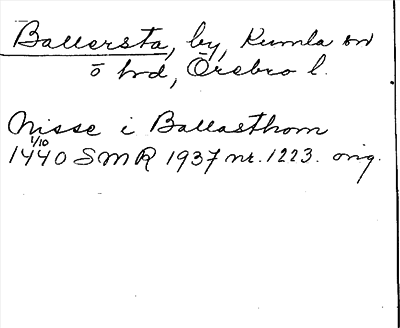 Ballersta, by, Kumla sn
ö hd, Örebro l.
Nisse i Ballasthom
1/10
1440 SMR 1937 nr. 1223. orig.